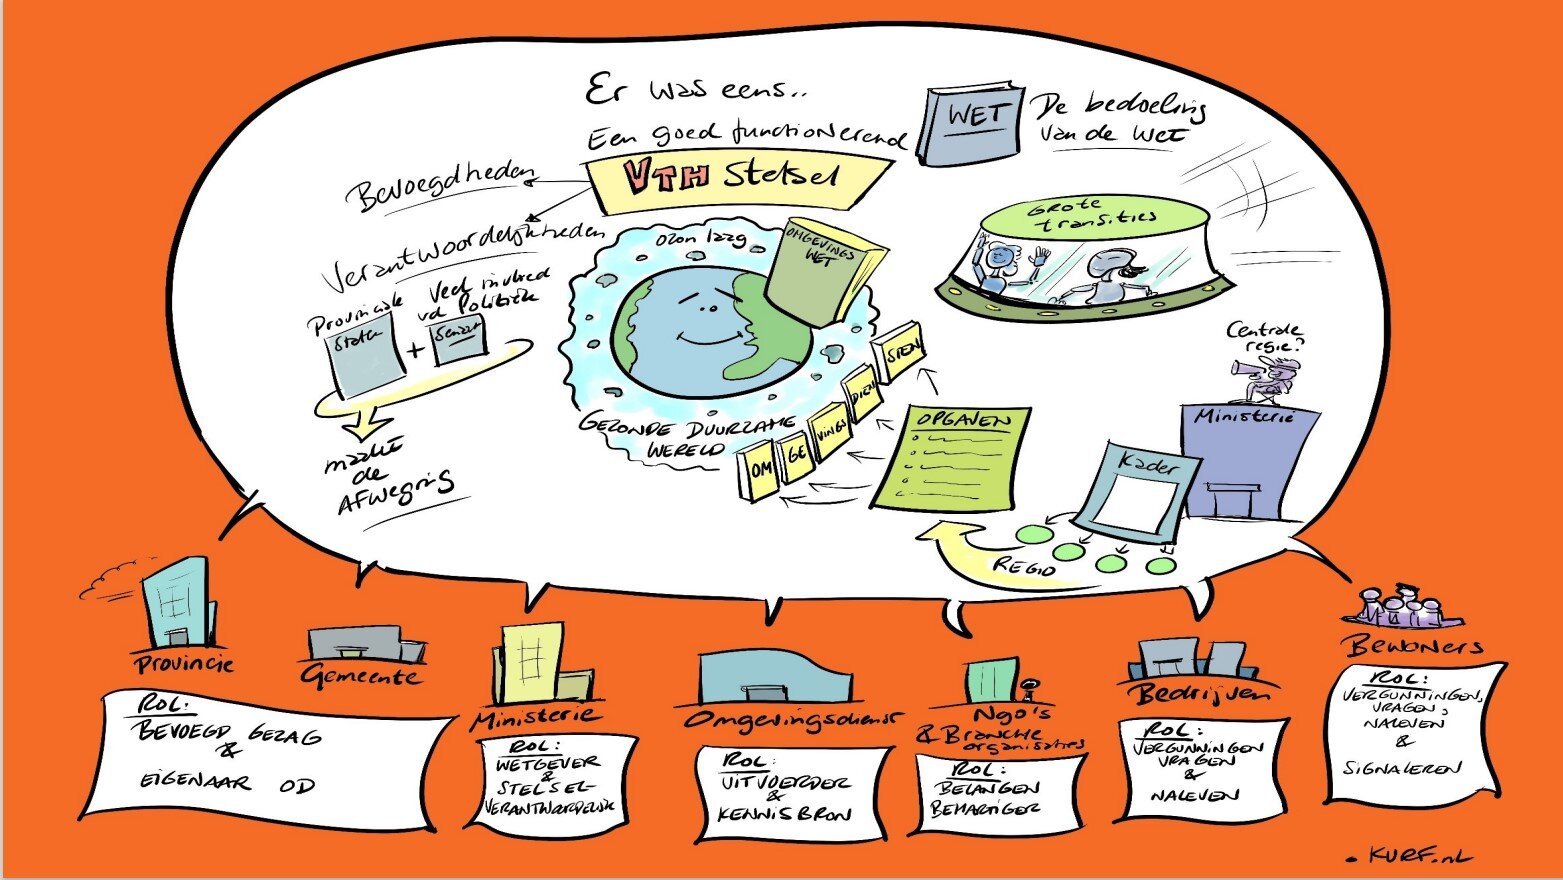 Er was eens..
Een goed functionerend
VTH Stelsel
WET
De bedoeling
van de wet
Bevoegdheden
Verantwoordelijkheden
Provinciale
Staten
+
Veel invloed
vd Politiek
maakt
de
AFWEGING
ozon laag
OMGEVINGS
WET
GEZONDE DUURZAME
WERELD
OM
GE
VINGS
DIEN
STEN
GROTE
transities
OPGAVEN
Centrale
regie?
Ministerie
Kader
REGIO
Provincie
ROL:
BEVOEGD GEZAG
&
EIGENAAR OD
Gemeente
Ministerie
ROL:
WETGEVER
&
STELSEL-
VERANTWOORDELIJK
Omgevingsdienst
ROL:
UITVOERDER
&
KENNISBRON
Ngo's
& Branche
organisaties
ROL:
BELANGEN
BEHARTIGER
Bedrijven
ROL:
VERGUNNINGEN
VRAGEN
&
NALEVEN
Bewoners
ROL:
VERGUNNINGEN,
VRAGEN,
NALEVEN
&
SIGNALEREN
.KURF.nL